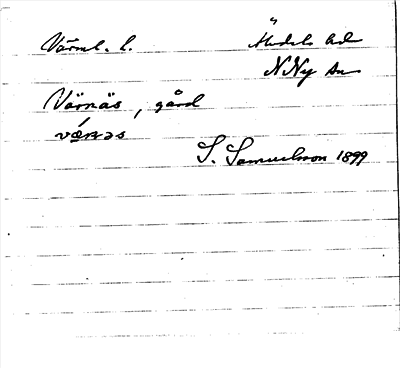 Värml. l. Älvdals hd
N Ny sn
Värnäs, gård
væ̀rnəs
S. Samuelsson 1899